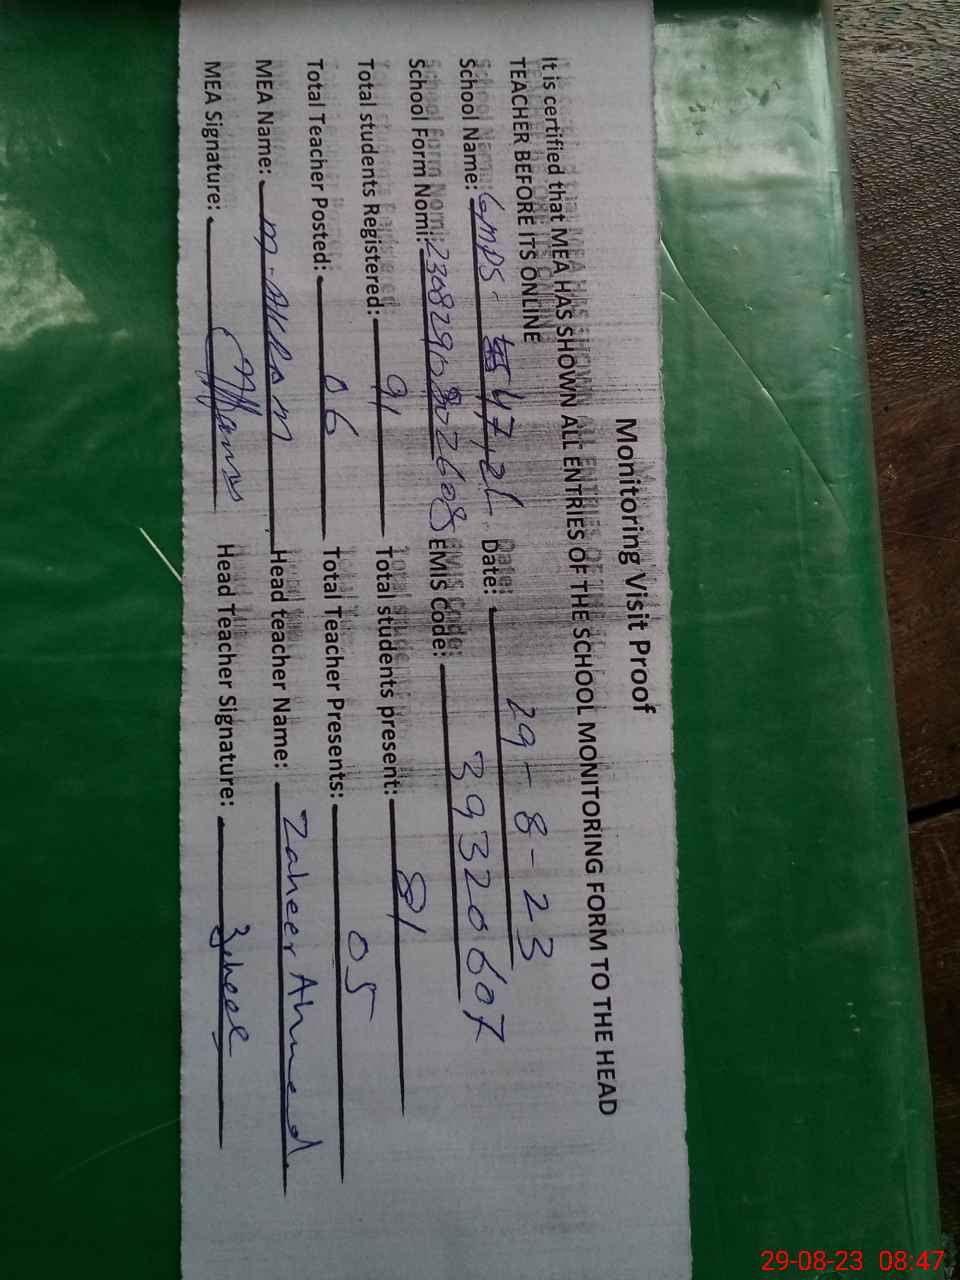 Monitoring Visit Proof
It is certified that MEA HAS SHOWN ALL ENTRIES OF THE SCHOOL MONITORING FORM TO THE HEAD
TEACHER BEFORE ITS ONLINE
School Name: GMPS 47,2L Date: 29-8-23
School Form Nomi: EMIS Code: 39320607
Total students Registered: 91 Total students present: 81
Total Teacher Posted: 06 Total Teacher Presents: 05
MEA Name: M-AKRAM Head teacher Name: Zaheer Ahmed
MEA Signature: Head Teacher Signature: Zaheer
29-08-23 08:47